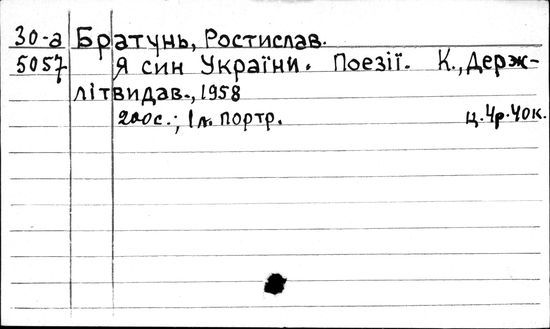 30-а Братунь, Ростислав.
5057 Я син України. Поезії. К., Держ-
літвидав., 1958
200с.; 1л. портр. ц. 4р. 40к.